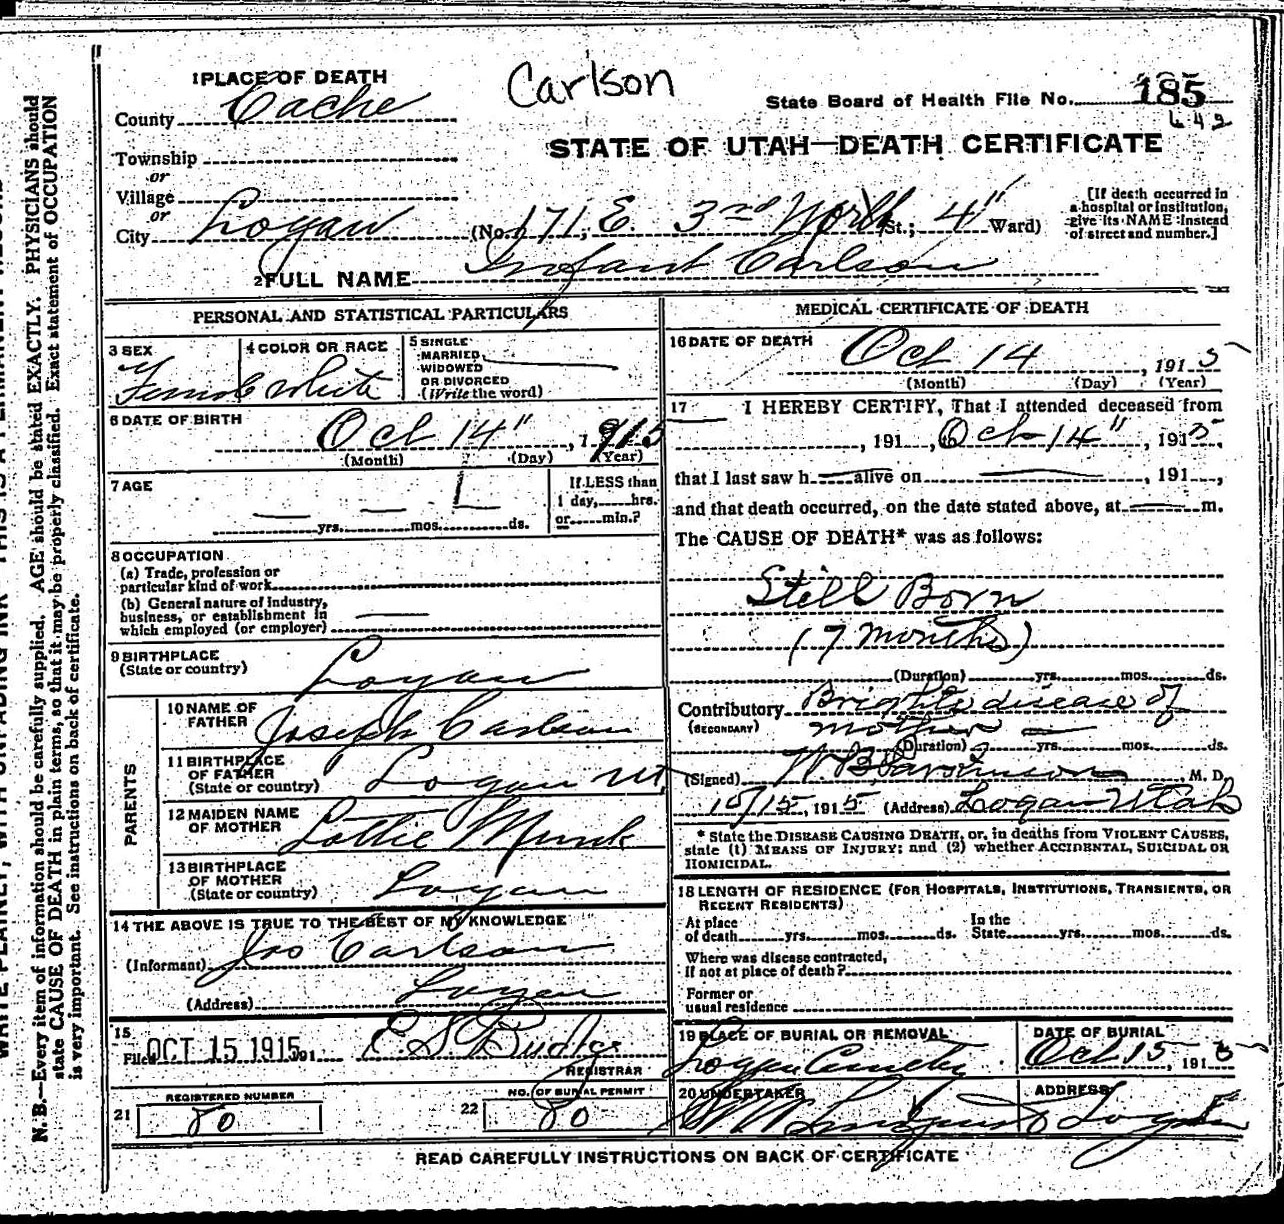 Carlson
1 PLACE OF DEATH
County Cache
State Board of Health File No. 185
642
STATE OF UTAH—DEATH CERTIFICATE
Township
or
Village
or
City Logan (No. 171, E. 3rd North St.; 4" Ward)
[If death occurred in
a hospital or institution,
give its NAME instead
of street and number.]
2 FULL NAME Infant Carlson
PERSONAL AND STATISTICAL PARTICULARS
3 SEX
Female
4 COLOR OR RACE
White
5 SINGLE
MARRIED
WIDOWED
OR DIVORCED
(Write the word)
6 DATE OF BIRTH
Oct 14", 1915
(Month) (Day) (Year)
7 AGE
— yrs. — mos. ds.
If LESS than
1 day, hrs.
or min.?
8 OCCUPATION
(a) Trade, profession or
particular kind of work
(b) General nature of industry,
business, or establishment in
which employed (or employer) —
9 BIRTHPLACE
(State or country) Logan
PARENTS
10 NAME OF
FATHER Joseph Carlson
11 BIRTHPLACE
OF FATHER
(State or country) Logan Ut,
12 MAIDEN NAME
OF MOTHER Lottie Munk
13 BIRTHPLACE
OF MOTHER
(State or country) Logan
14 THE ABOVE IS TRUE TO THE BEST OF MY KNOWLEDGE
(Informant) Jos Carlson
(Address) Logan
15
Filed OCT 15 1915 191 E. S. Budge
REGISTRAR
21 REGISTERED NUMBER
80
22 NO. OF BURIAL PERMIT
80
MEDICAL CERTIFICATE OF DEATH
16 DATE OF DEATH
Oct 14, 1915
(Month) (Day) (Year)
17 I HEREBY CERTIFY, That I attended deceased from
, 191 , Oct 14", 1915,
that I last saw h — alive on —, 191 ,
and that death occurred, on the date stated above, at — m.
The CAUSE OF DEATH* was as follows:
Still Born
(7 months)
(Duration) yrs. mos. ds.
Contributory Brights disease of
(SECONDARY) mother —
(Duration) yrs. mos. ds.
(Signed) M. D.
10/15, 1915 (Address) Logan Utah
* State the DISEASE CAUSING DEATH, or, in deaths from VIOLENT CAUSES,
state (1) MEANS OF INJURY; and (2) whether ACCIDENTAL, SUICIDAL OR
HOMICIDAL.
18 LENGTH OF RESIDENCE (FOR HOSPITALS, INSTITUTIONS, TRANSIENTS, OR
RECENT RESIDENTS)
At place
of death yrs. mos. ds.
In the
State yrs. mos. ds.
Where was disease contracted,
if not at place of death?
Former or
usual residence
19 PLACE OF BURIAL OR REMOVAL
Logan
DATE OF BURIAL
Oct 15, 1915
20 UNDERTAKER
ADDRESS
Logan
READ CAREFULLY INSTRUCTIONS ON BACK OF CERTIFICATE
N. B.—Every item of information should be carefully supplied. AGE should be stated EXACTLY. PHYSICIANS should
state CAUSE OF DEATH in plain terms, so that it may be properly classified. Exact statement of OCCUPATION
is very important. See instructions on back of certificate.